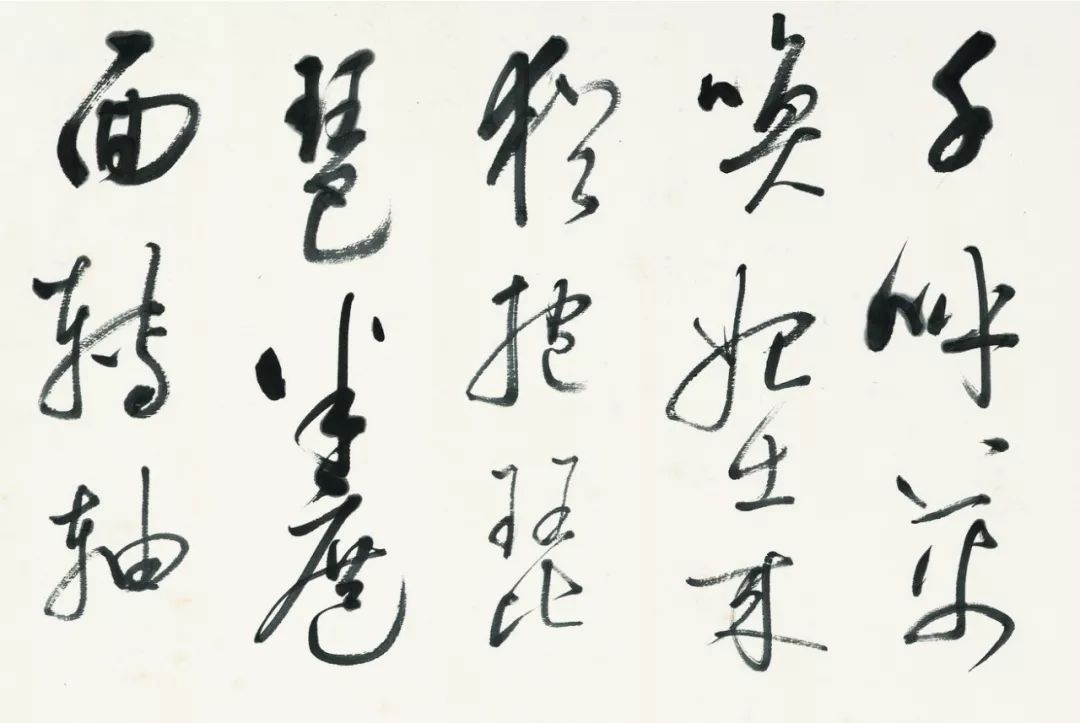 千呼万
唤始出来
犹抱琵
琶半遮
面转轴